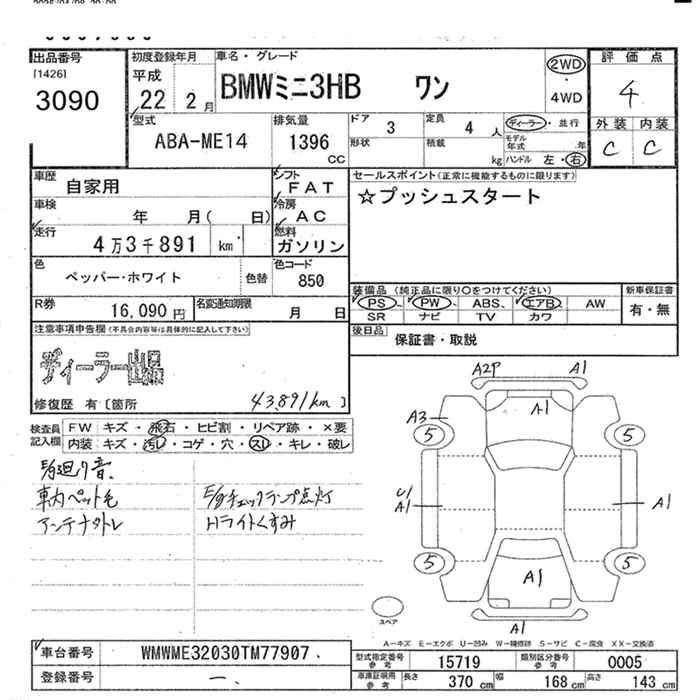 出品番号
[1426]
3090
初度登録年月
平成
22 2月
車名・グレード
BMWミニ3HB ワン
2WD
・
4WD
評価点
4
外装 内装
C C
型式
ABA-ME14
排気量
1396
CC
ドア 3
形状
定員 4 人
積載 kg
ディーラー・並行
モデル年式 年
ハンドル 左・右
車歴
自家用
車検
年 月( 日)
走行
4万3千891 km
色
ペッパー・ホワイト
色替
シフト
FAT
冷房
AC
燃料
ガソリン
色コード
850
R券
16,090円
名変通知期限
月 日
セールスポイント(正常に機能するものに限ります)
☆プッシュスタート
装備品 (純正品に限り○をつけてください)
PS、 PW、 ABS、 エアB、 AW
SR ナビ TV カワ
新車保証書
有・無
後日品
保証書・取説
注意事項申告欄(不具合内容等は具体的に記入して下さい)
ディーラー出品
修復歴 有〔箇所
43,891km〕
検査員記入欄
FW キズ・飛石・ヒビ割・リペア跡・×要
内装 キズ・汚レ・コゲ・穴・スレ・キレ・破レ
E/g廻り音、
車内ペット毛
アンテナ外レ
E/gチェックランプ点灯
Hライトくすみ
A2P A1
A1
A3
5 5
U1
A1
A1
5 5
A1
A1
スペア
A-キズ E-エクボ U-凹み W-補修跡 S-サビ C-腐食 XX-交換済
車台番号
WMWME32030TM77907
登録番号
一、
型式指定番号
参考
15719
類別区分番号
参考
0005
車庫証明用
参考
長さ 370 cm
幅 168 cm
高さ 143 cm